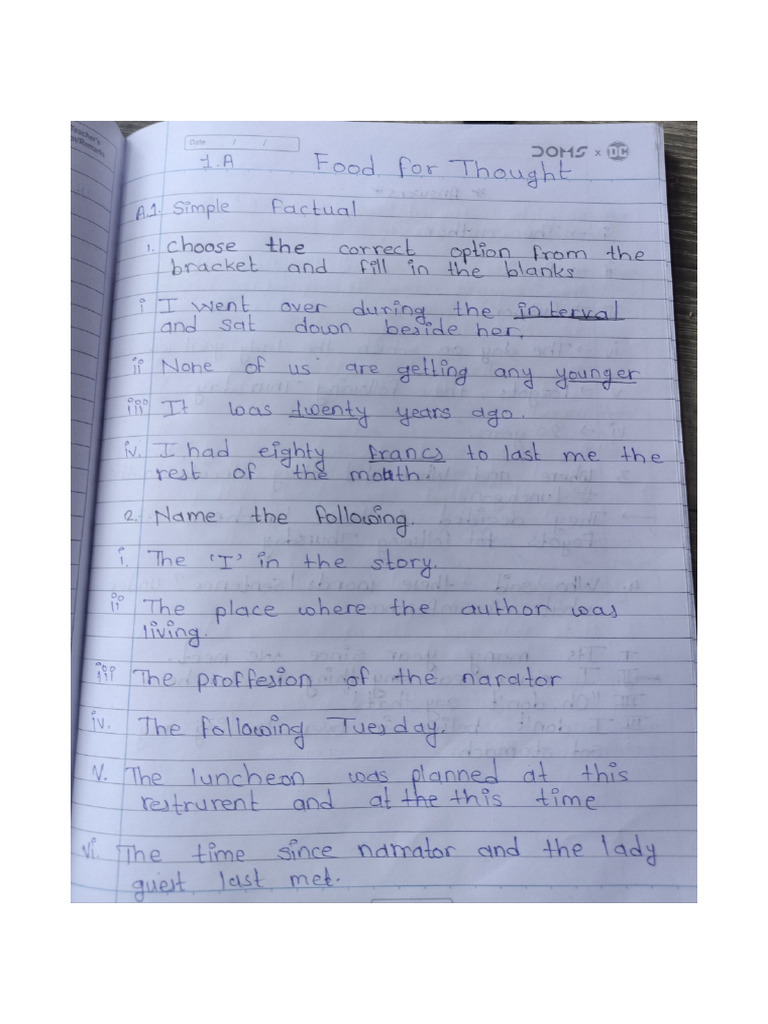 Teacher's
Date / /
DOMS x DC
1.A Food for Thought
A.1. Simple factual
1. choose the correct option from the
bracket and fill in the blanks
i I went over during the interval
and sat down beside her.
ii None of us are getting any younger
iii It was twenty years ago.
iv. I had eighty francs to last me the
rest of the month.
2. Name the following.
i. The 'I' in the story.
ii The place where the author was
living.
iii The proffesion of the narator
iv. The following Tuesday.
v. The luncheon was planned at this
restrurent and at the this time
vi. The time since narrator and the lady
guest last met.